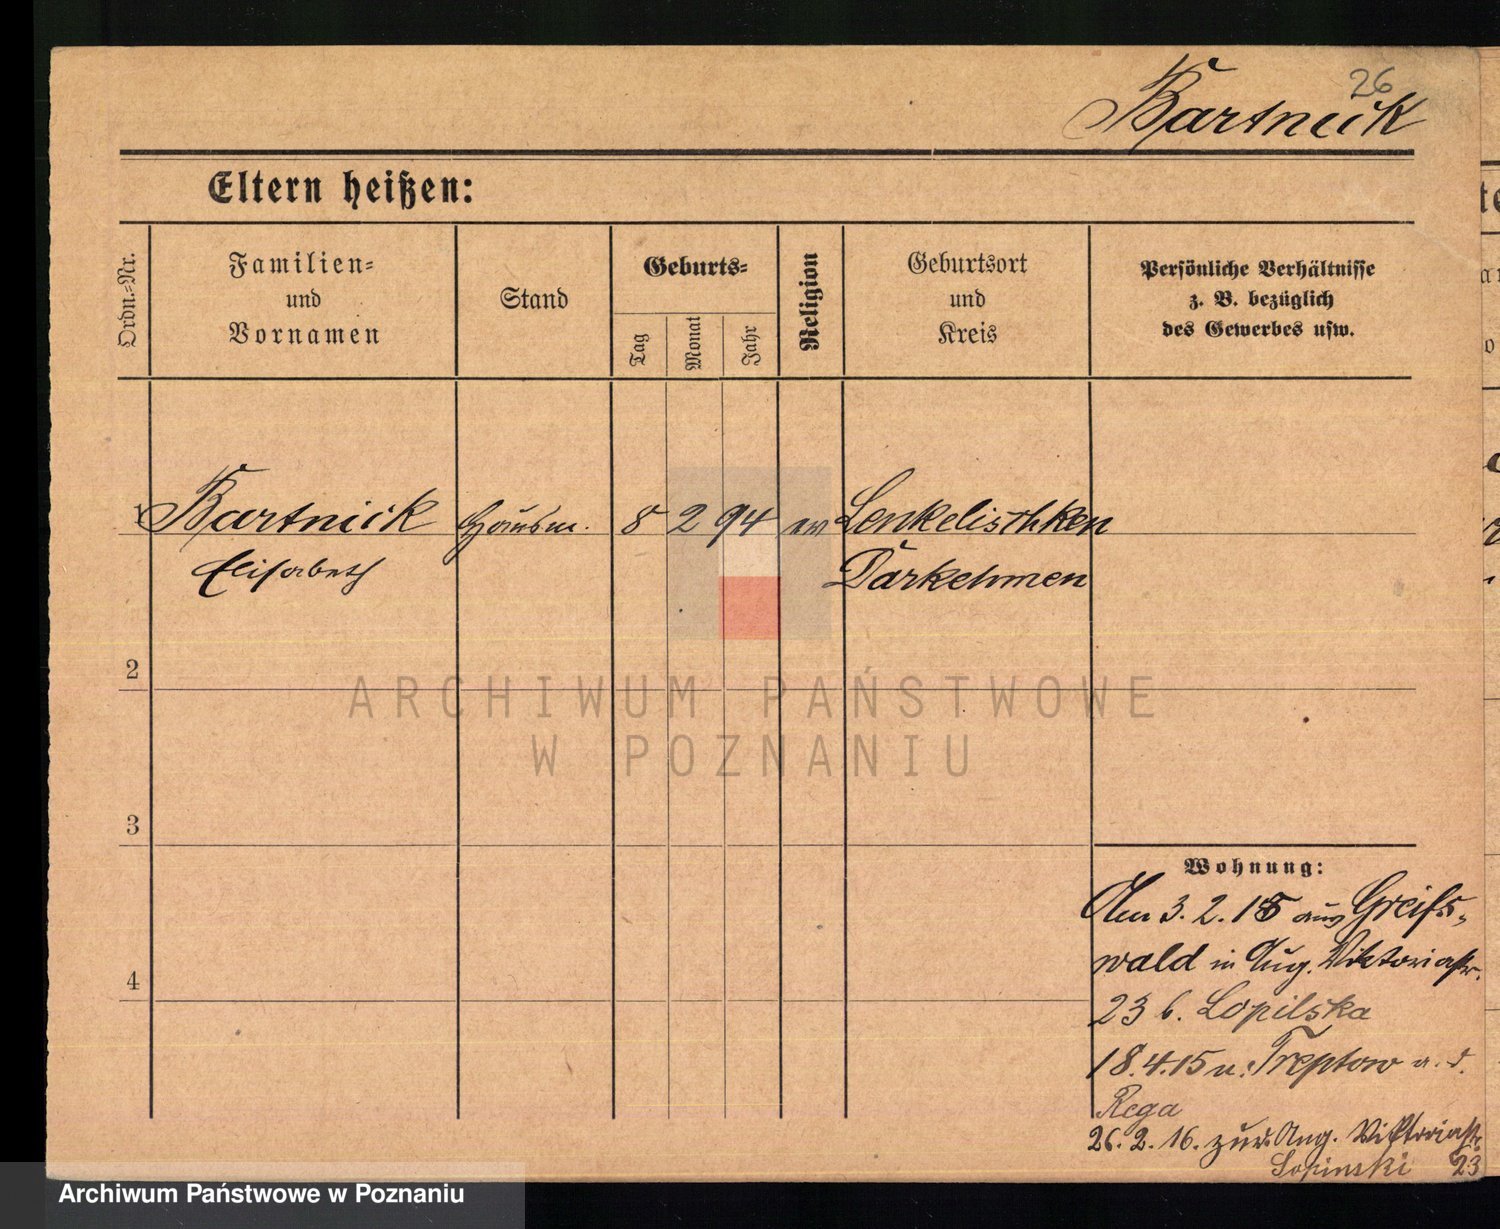 26
Bartnick
Eltern heißen:
Ordn.-Nr.
Familien- und Vornamen
Stand
Geburts-
Tag
Monat
Jahr
Religion
Geburtsort und Kreis
Persönliche Verhältnisse
z. B. bezüglich
des Gewerbes usw.
1 Bartnick Hausm. 8 2 94 ev Lenkelischken
Elisabeth Darkehmen
2
ARCHIWUM PAŃSTWOWE
W POZNANIU
3
4
Wohnung:
Am 3. 2. 15 aus Greifs-
wald in Aug. Viktoriastr.
23 b. Lopilska
18.4.15 n. Treptow a. d.
Rega
26. 2. 16. zur. Aug. Viktoriastr.
Lopinski 23
Archiwum Państwowe w Poznaniu